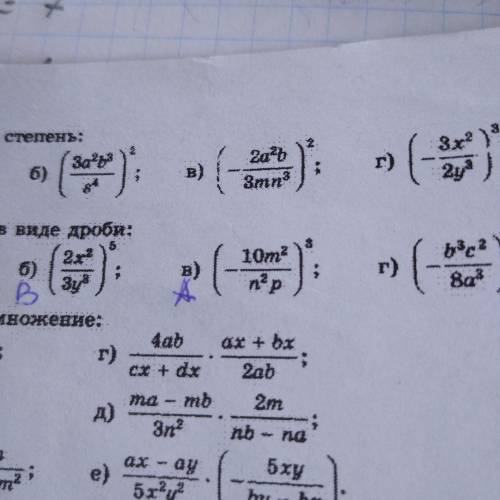 степень:
б) (3a²b³/s⁴)²; в) (-2a²b/3mn³)²; г) (-3x²/2y³)³
в виде дроби:
б) (2x²/3y³)⁵; в) (-10m²/n²p)³; г) (-b³c²/8a³
B A
множение:
г) 4ab/cx + dx · ax + bx/2ab;
д) ma - mb/3n² · 2m/nb - na;
m²; е) ax - ay/5x²y² · (-5xy/